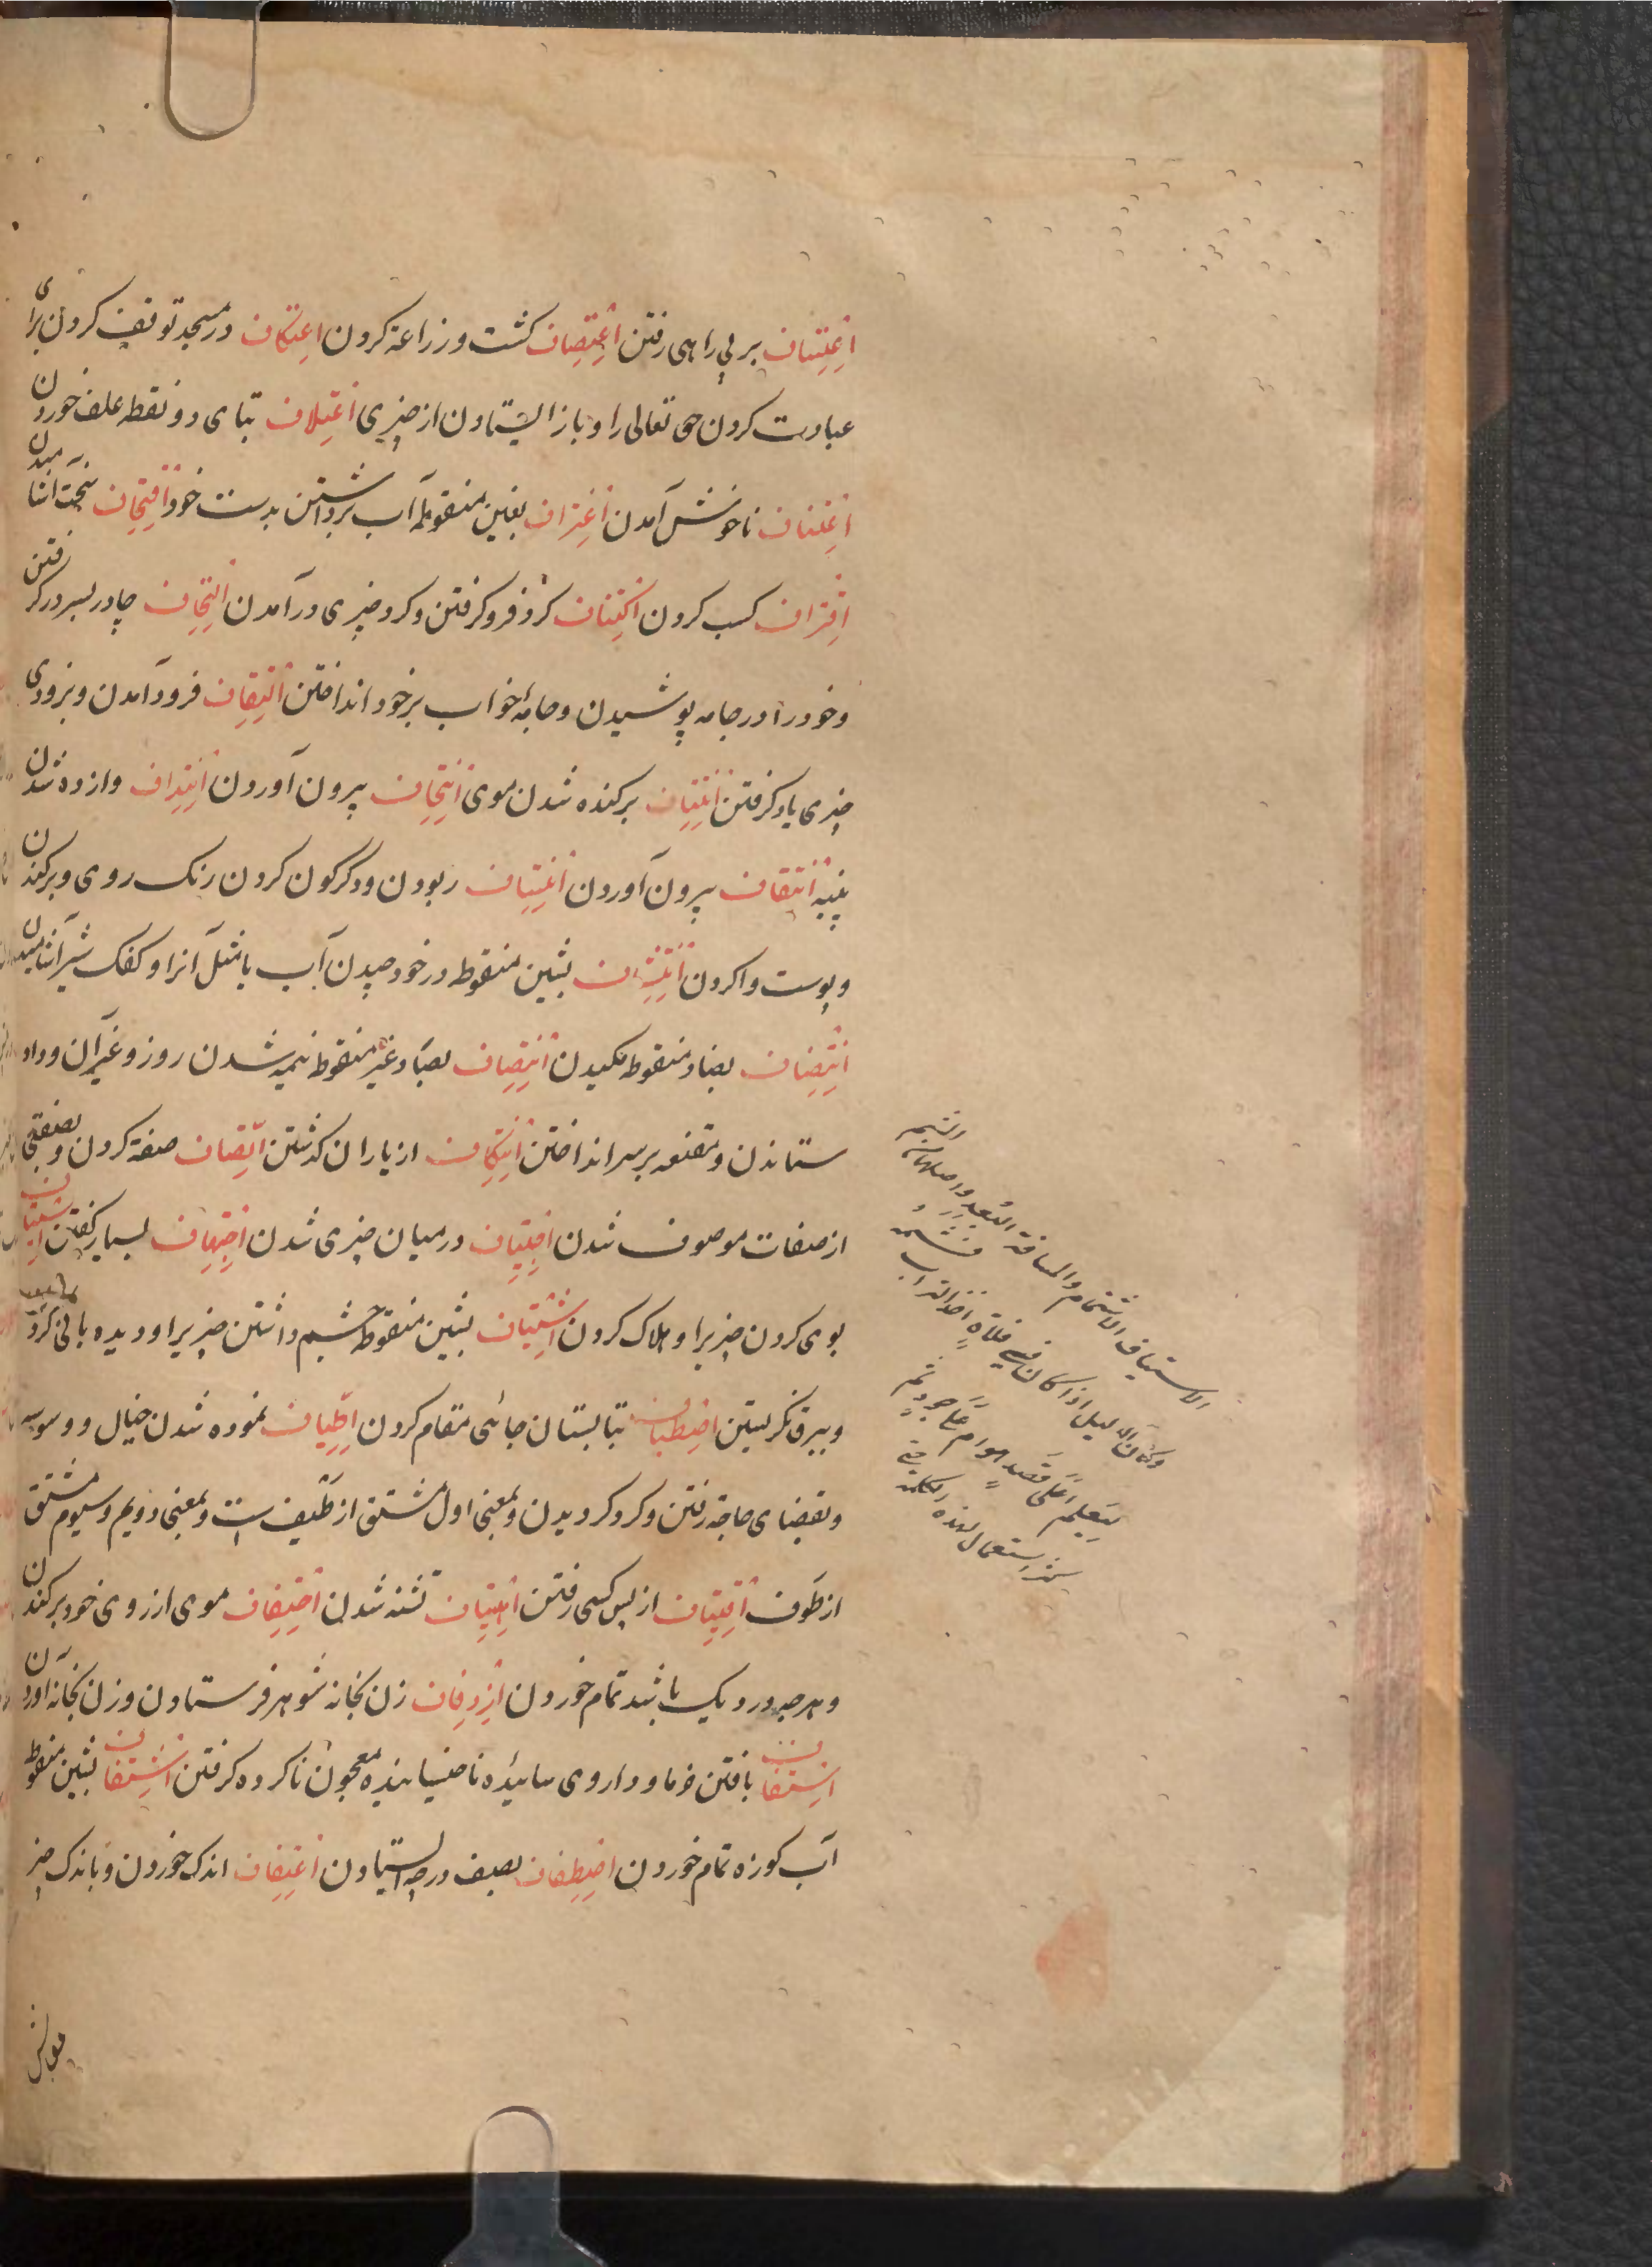 اعتساف بر بی راهی رفتن اعتصاف کشت و زراعة کردن اعتکاف در مسجد توقف کردن برای
عبادت کردن حق تعالی را و باز ایستادن از چیزی اعتلاف بتای دو نقطه علف خوردن
اعتناف ناخوش آمدن اغتراف بغین منقوطه آب برداشتن بدست خود اقتحاف سخت آشامیدن
اقتراف کسب کردن اکتناف کرد فرو کرفتن و کرد چیزی در آمدن التحاف چادر بسر در کرفتن
و خود را در جامه پوشیدن و جامهٔ خواب بر خود انداختن التقاف فرود آمدن و بزودی
چیزی یاد کرفتن انتتاف برکنده شدن موی انتجاف بیرون آوردن انتداف وازده شدن
پنبه انتقاف بیرون آوردن انتساف ربودن و دکرکون کردن رنک روی و برکندن
و پوست وا کردن انتشاف بشین منقوط در خود چیدن آب یا مثل آنرا و کفک شیر آشامیدن
انتضاف بضاد منقوطه مکیدن انتصاف بصاد غیر منقوط نیمه شدن روز و غیر آن و داد
ستاندن و مقنعه بر سر انداختن انتکاف از یاران کذشتن اتصاف صفة کردن و بصفتی
از صفات موصوف شدن اجتیاف در میان چیزی شدن اجتهاف بسیار کرفتن استیاف
بوی کردن چیزیرا و هلاک کردن اشتیاف بشین منقوط چشم داشتن چیزیرا و دیده بالی کردن
و ببرق نکریستن اصطیاف بتابستان جائی مقام کردن اطیاف نموده شدن خیال و وسوسه
و بقضای حاجة رفتن و کرد کردیدن و بمعنی اول مشتق از طیف است و بمعنی دویم و سیوم مشتق
از طوف اقتیاف از پس کسی رفتن اهتیاف تشنه شدن احتفاف موی از روی خود برکندن
و هر چه در دیک باشد تمام خوردن ازدفاف زن بخانه شوهر فرستادن و زن بخانه آوردن
استفاف بافتن خرما و داروی سائیده ناخیسانیده معجون ناکرده کرفتن اشتفاف بشین منقوط
آب کوزه تمام خوردن اصطفاف بصف در چه ایستادن اغتفاف اندک خوردن و باندک چیز
الاستیاف الاشتمام والمسافة البعد واصلها من الشم
وکان الدلیل اذا کان فی فلاة اخذ التراب فشمه
لیعلم اعلی قصد هوام علی جور ثم
کثر استعمال لهذه الکلمة حتی